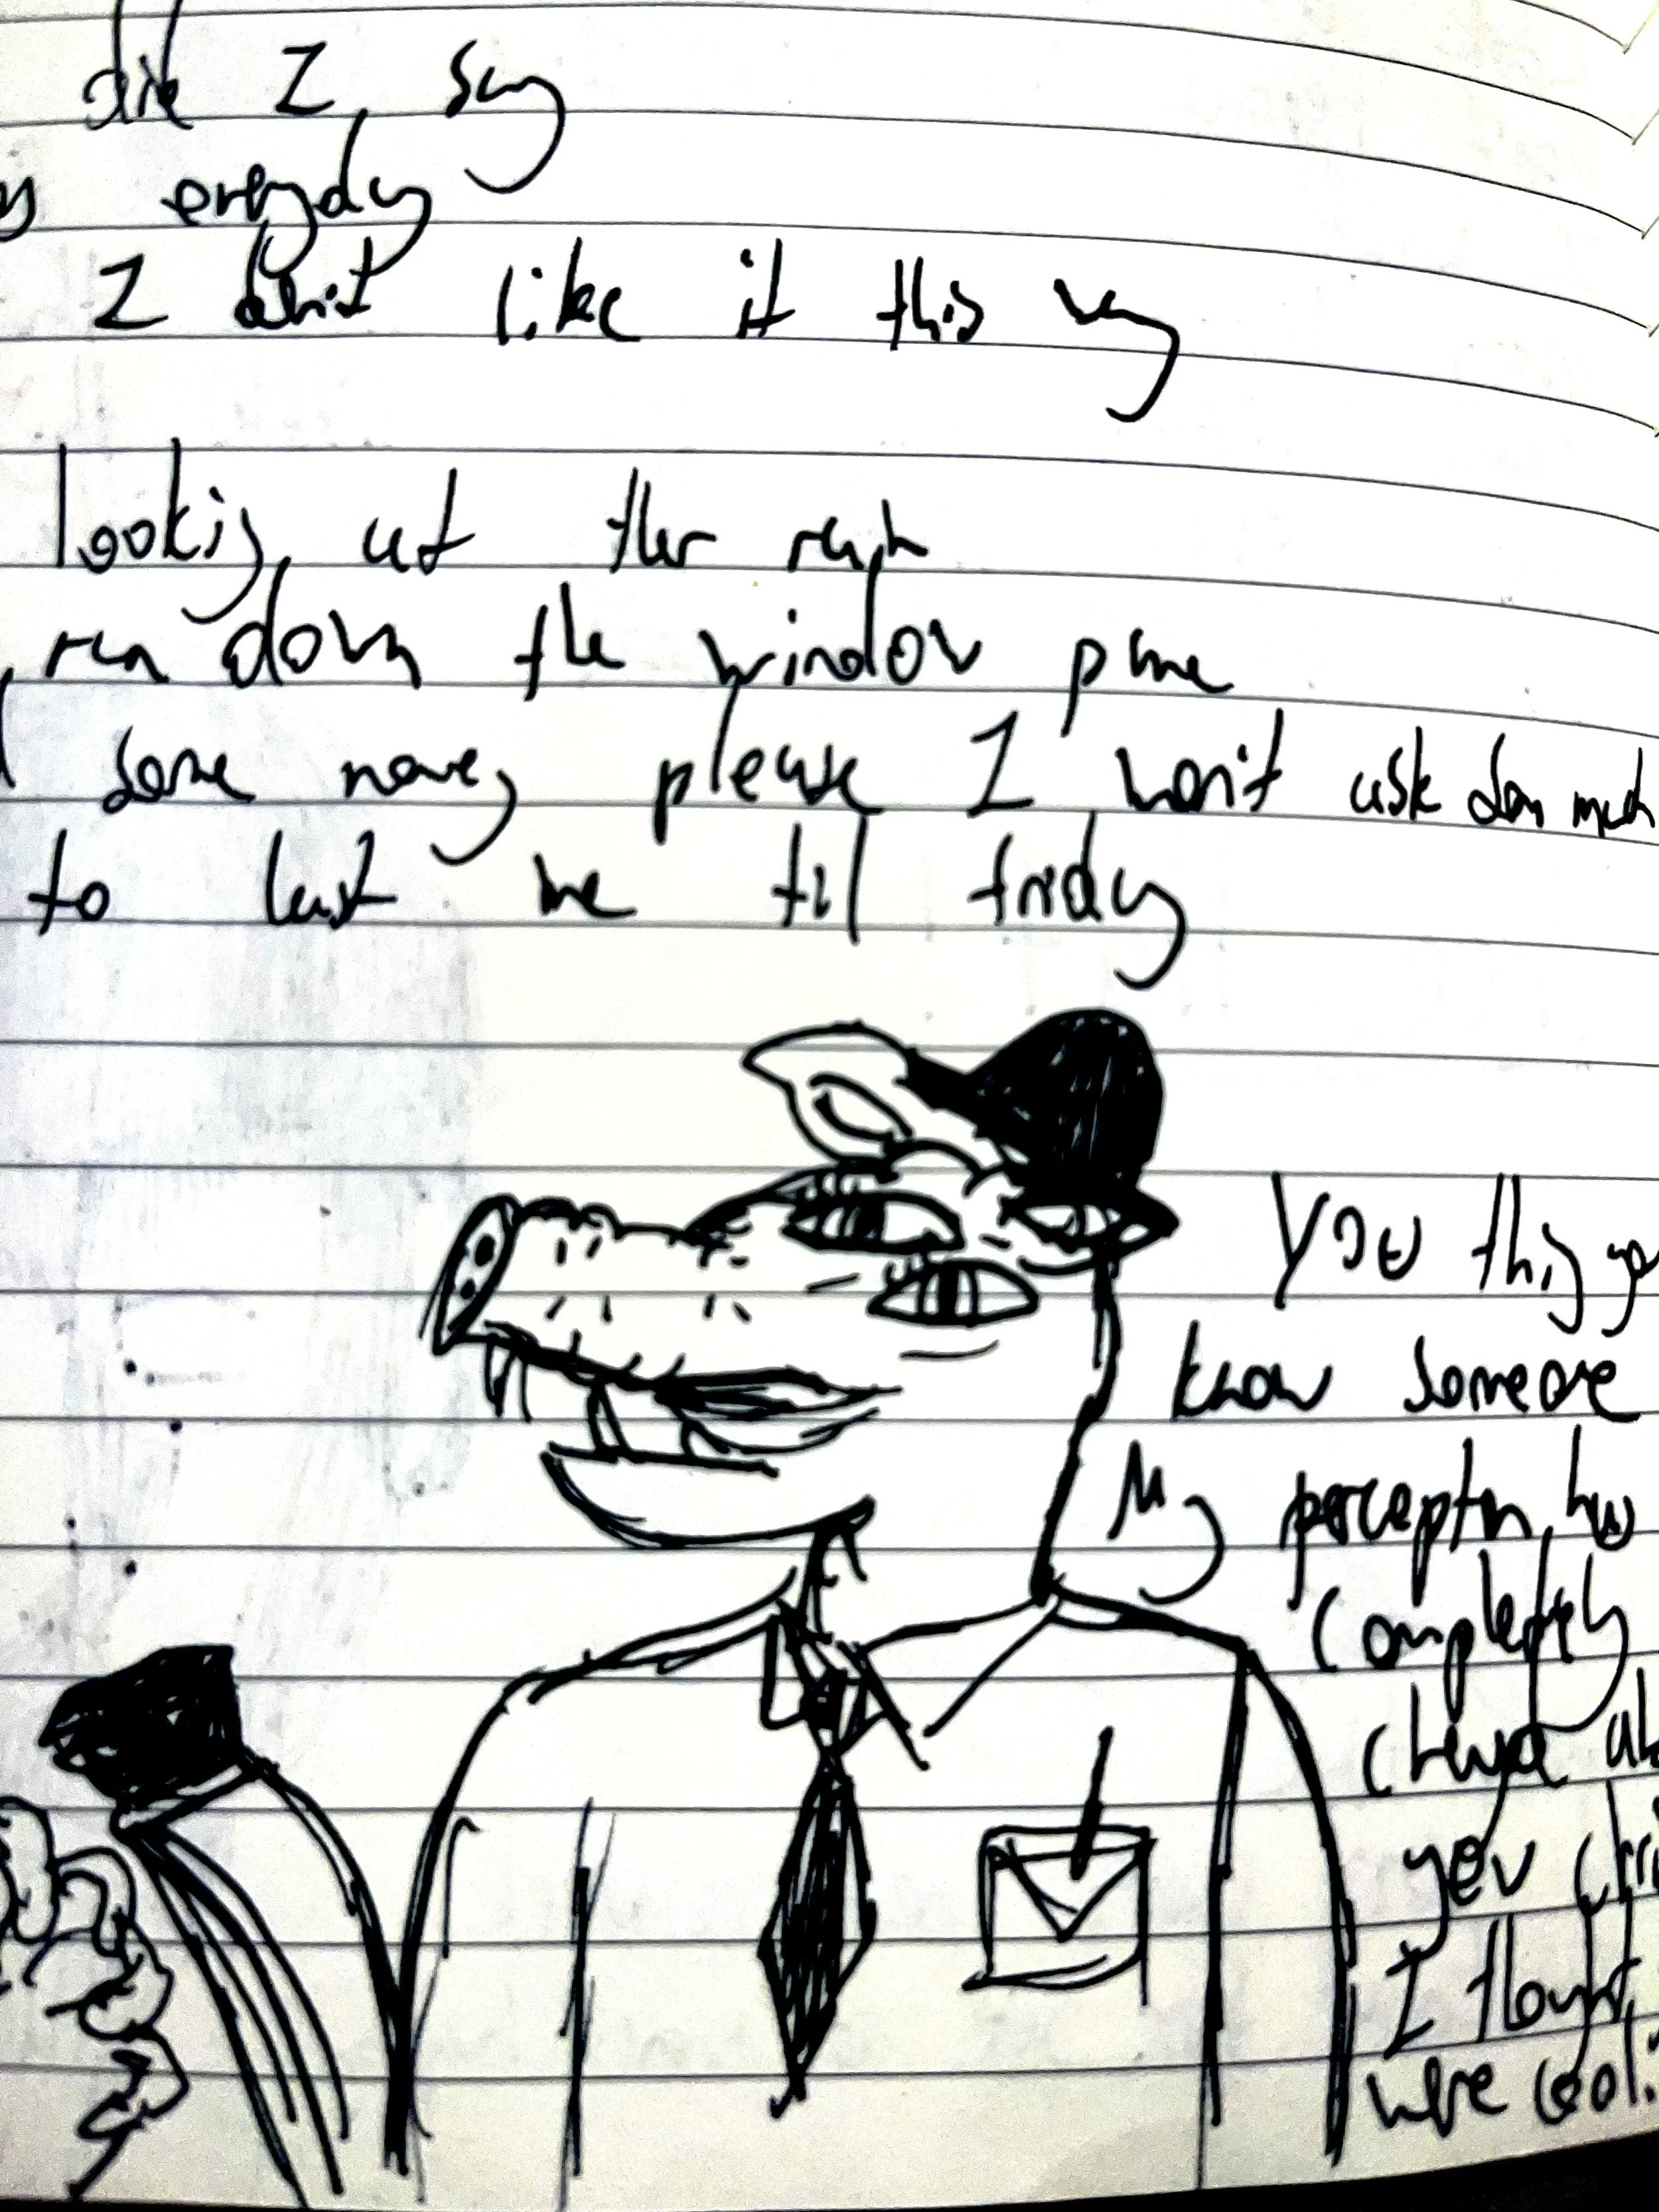 I say
everyday
I don't like it this way
looking at ther rain
run down the window pane
some money please I won't ask
to last me til friday
You thing
know someone
My perception has
completely
yev
I thought
were cool